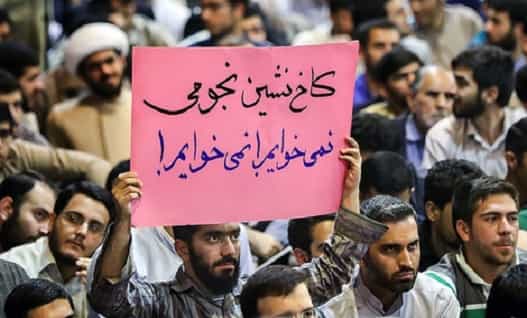 کاخ نشین نجومی
نمی خوایم! نمی خوایم!